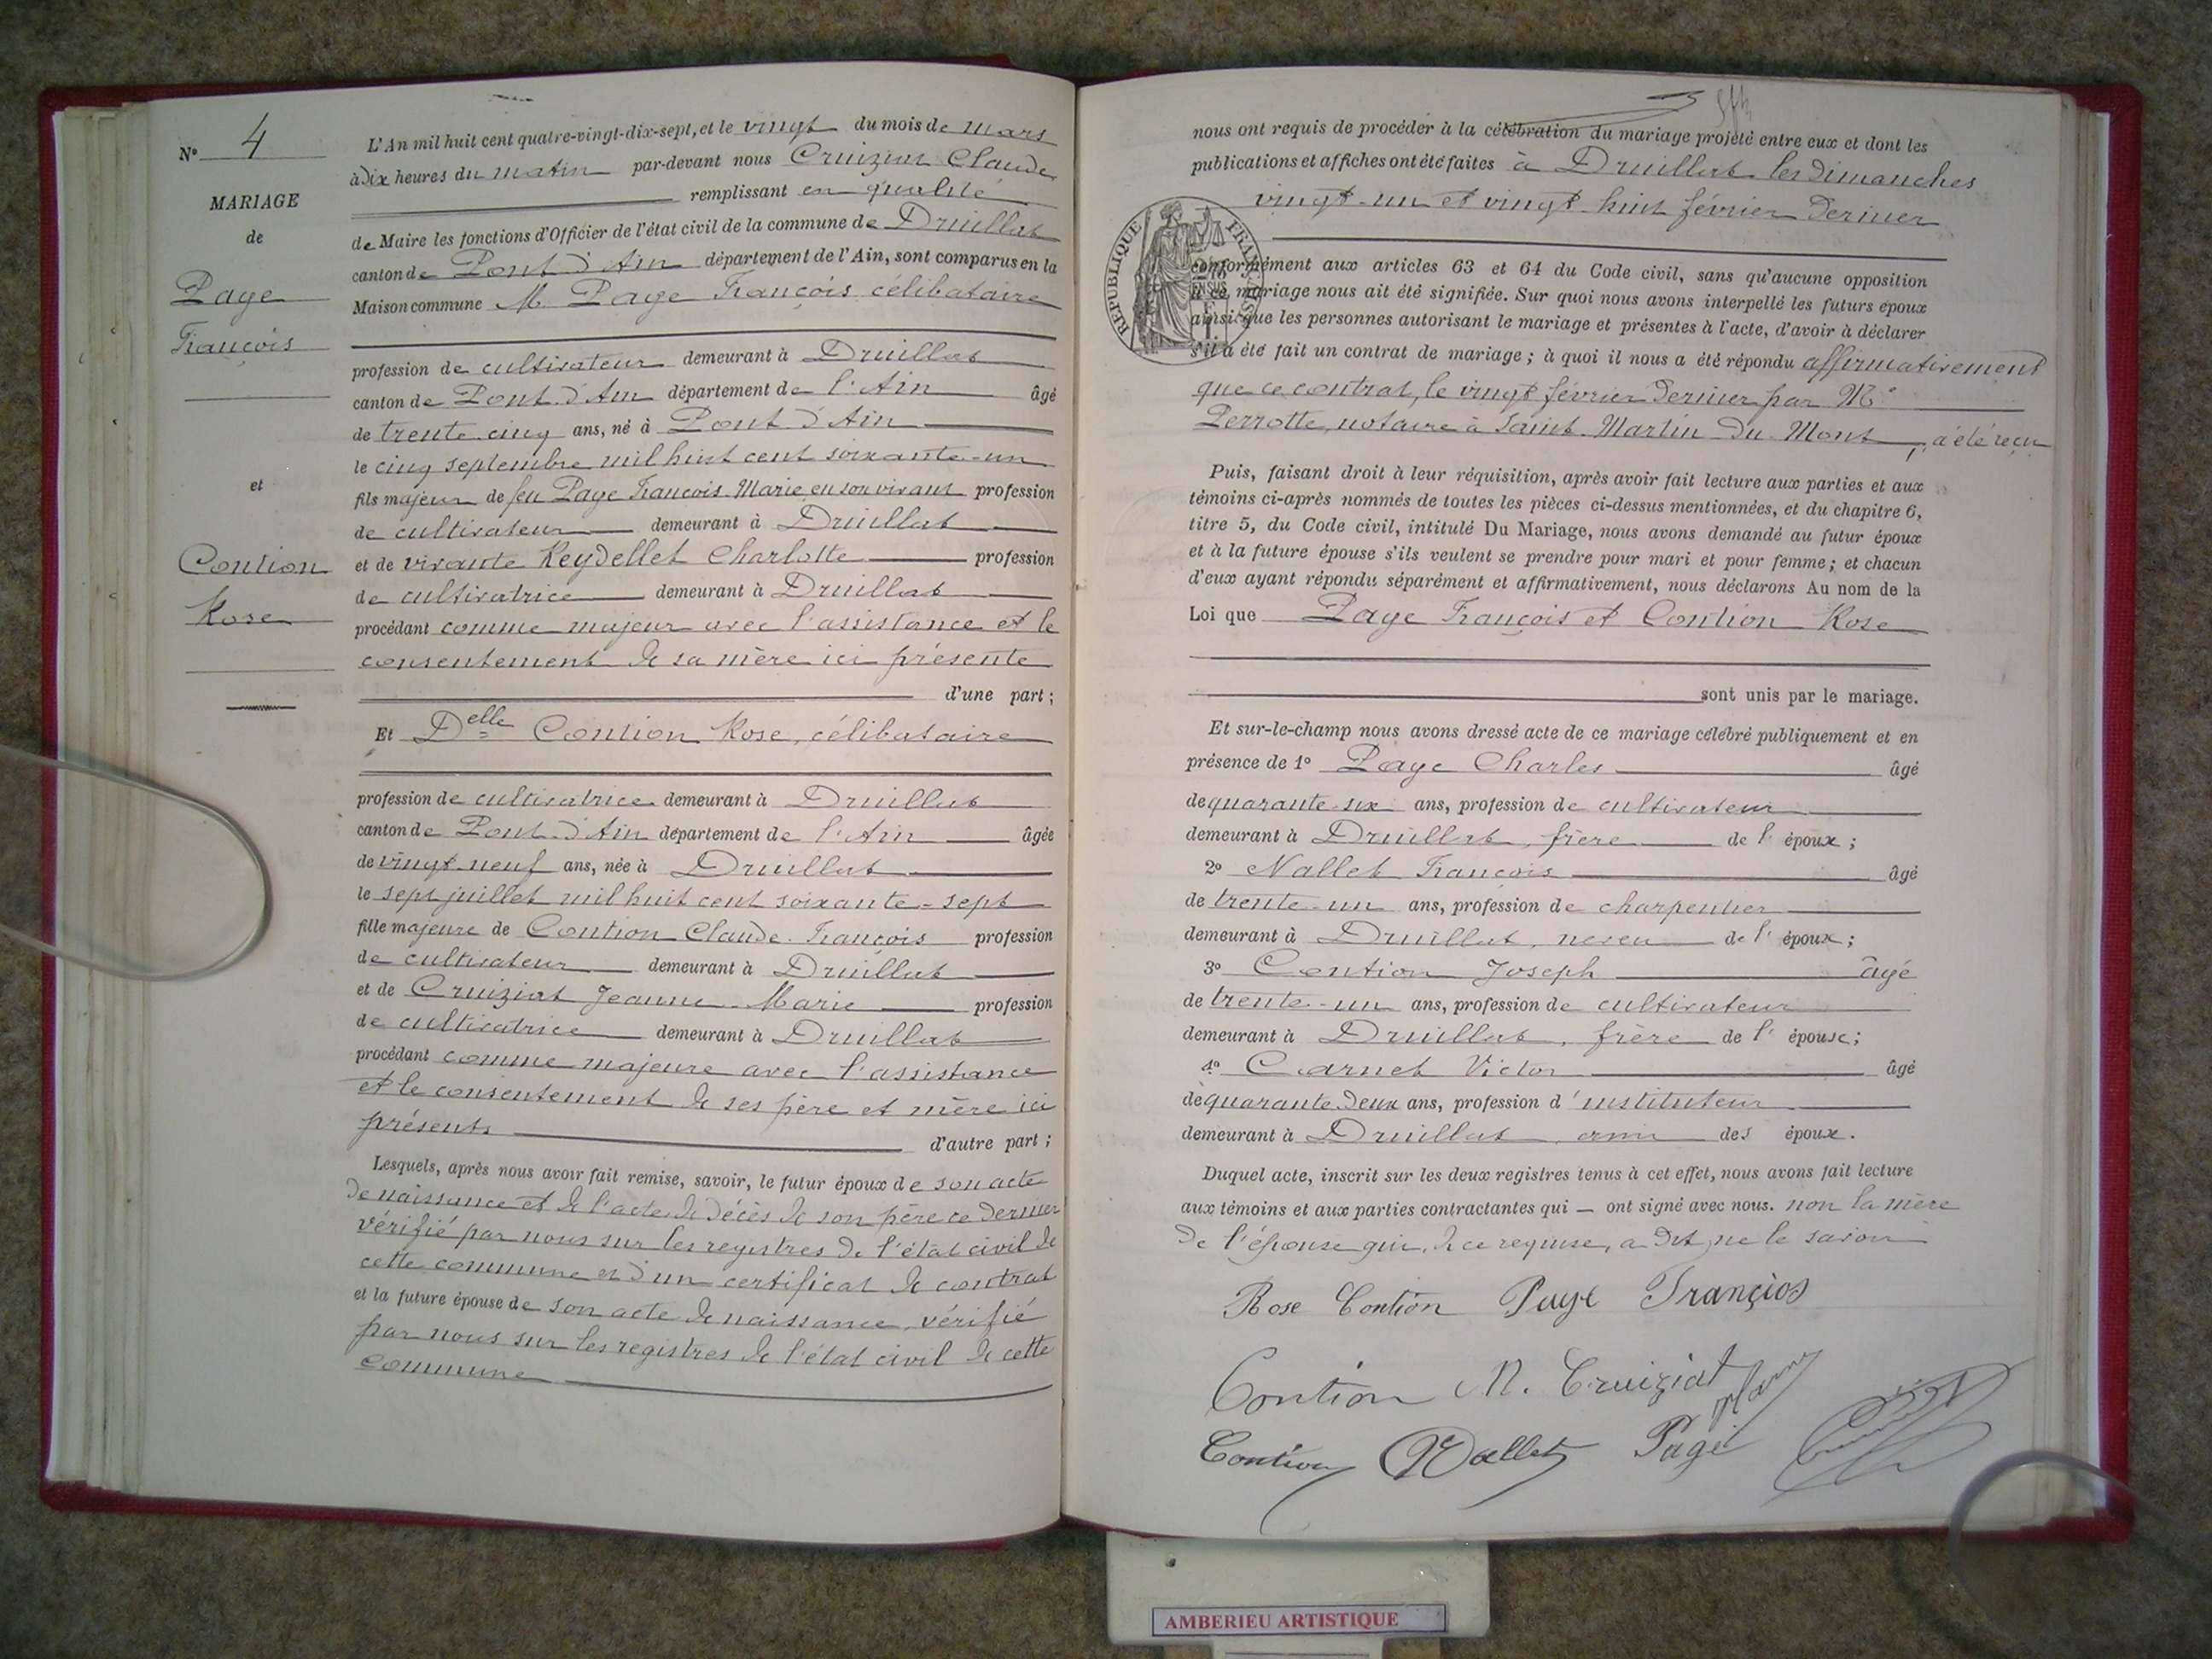 N° 4
MARIAGE
de
Page
François
et
Contion
Rose
L'An mil huit cent quatre-vingt-dix-sept, et le vingt du mois de mars
à dix heures du matin par-devant nous Cruiziat Claude
remplissant en qualité
de Maire les fonctions d'Officier de l'état civil de la commune de Druillat
canton de Pont d'Ain département de l'Ain, sont comparus en la
Maison commune M. Page François célibataire
profession de cultivateur demeurant à Druillat
canton de Pont d'Ain département de l'Ain âgé
de trente cinq ans, né à Pont d'Ain
le cinq septembre mil huit cent soixante-un
fils majeur de feu Page François Marie en son vivant profession
de cultivateur demeurant à Druillat
et de vivante Reydellet Charlotte profession
de cultivatrice demeurant à Druillat
procédant comme majeur avec l'assistance et le
consentement de sa mère ici présente
d'une part ;
Et Delle Contion Rose, célibataire
profession de cultivatrice demeurant à Druillat
canton de Pont d'Ain département de l'Ain âgée
de vingt-neuf ans, née à Druillat
le sept juillet mil huit cent soixante-sept
fille majeure de Contion Claude François profession
de cultivateur demeurant à Druillat
et de Cruiziat Jeanne-Marie profession
de cultivatrice demeurant à Druillat
procédant comme majeure avec l'assistance
et le consentement de ses père et mère ici
présents d'autre part ;
Lesquels, après nous avoir fait remise, savoir, le futur époux de son acte
de naissance et de l'acte de décès de son père ce dernier
vérifié par nous sur les registres de l'état civil de
cette commune et d'un certificat de contrat
et la future épouse de son acte de naissance, vérifié
par nous sur les registres de l'état civil de cette
commune
nous ont requis de procéder à la célébration du mariage projeté entre eux et dont les
publications et affiches ont été faites à Druillat les dimanches
vingt-un et vingt-huit février dernier
RÉPUBLIQUE FRANÇAISE
conformément aux articles 63 et 64 du Code civil, sans qu'aucune opposition
à ce mariage nous ait été signifiée. Sur quoi nous avons interpellé les futurs époux
ainsi que les personnes autorisant le mariage et présentes à l'acte, d'avoir à déclarer
s'il a été fait un contrat de mariage ; à quoi il nous a été répondu affirmativement
que ce contrat, le vingt février dernier par Me
Perrotte, notaire à Saint-Martin-du-Mont, a été reçu
Puis, faisant droit à leur réquisition, après avoir fait lecture aux parties et aux
témoins ci-après nommés de toutes les pièces ci-dessus mentionnées, et du chapitre 6,
titre 5, du Code civil, intitulé Du Mariage, nous avons demandé au futur époux
et à la future épouse s'ils veulent se prendre pour mari et pour femme ; et chacun
d'eux ayant répondu séparément et affirmativement, nous déclarons Au nom de la
Loi que Page François et Contion Rose
sont unis par le mariage.
Et sur-le-champ nous avons dressé acte de ce mariage célébré publiquement et en
présence de 1° Page Charles âgé
de quarante-six ans, profession de cultivateur
demeurant à Druillat, frère de l'époux ;
2° Nallet François âgé
de trente-un ans, profession de charpentier
demeurant à Druillat, neveu de l'époux ;
3° Contion Joseph âgé
de trente-un ans, profession de cultivateur
demeurant à Druillat, frère de l'épouse ;
4° Carnet Victor âgé
de quarante-deux ans, profession d'instituteur
demeurant à Druillat, ami des époux.
Duquel acte, inscrit sur les deux registres tenus à cet effet, nous avons fait lecture
aux témoins et aux parties contractantes qui — ont signé avec nous. non la mère
de l'épouse qui, de ce requise, a dit ne le savoir
Rose Contion Page François
Contion M. Cruiziat
Contion Nallet Page
AMBERIEU ARTISTIQUE